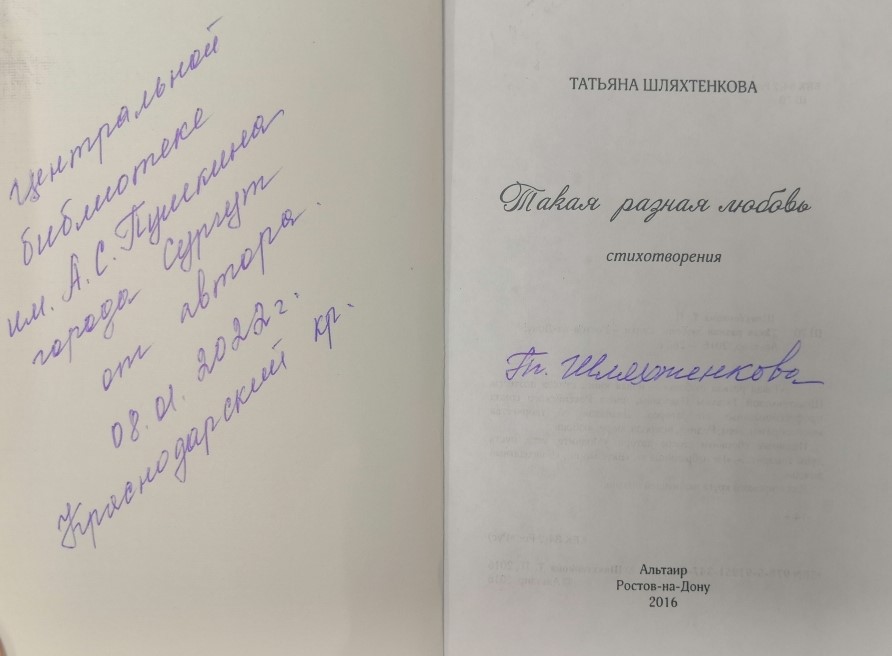 Центральной
библиотеке
им. А.С. Пушкина
города Сургут
от автора.
08.01.2022г.
Краснодарский кр.
ТАТЬЯНА ШЛЯХТЕНКОВА
Такая разная любовь
стихотворения
Тт. Шляхтенкова
Альтаир
Ростов-на-Дону
2016